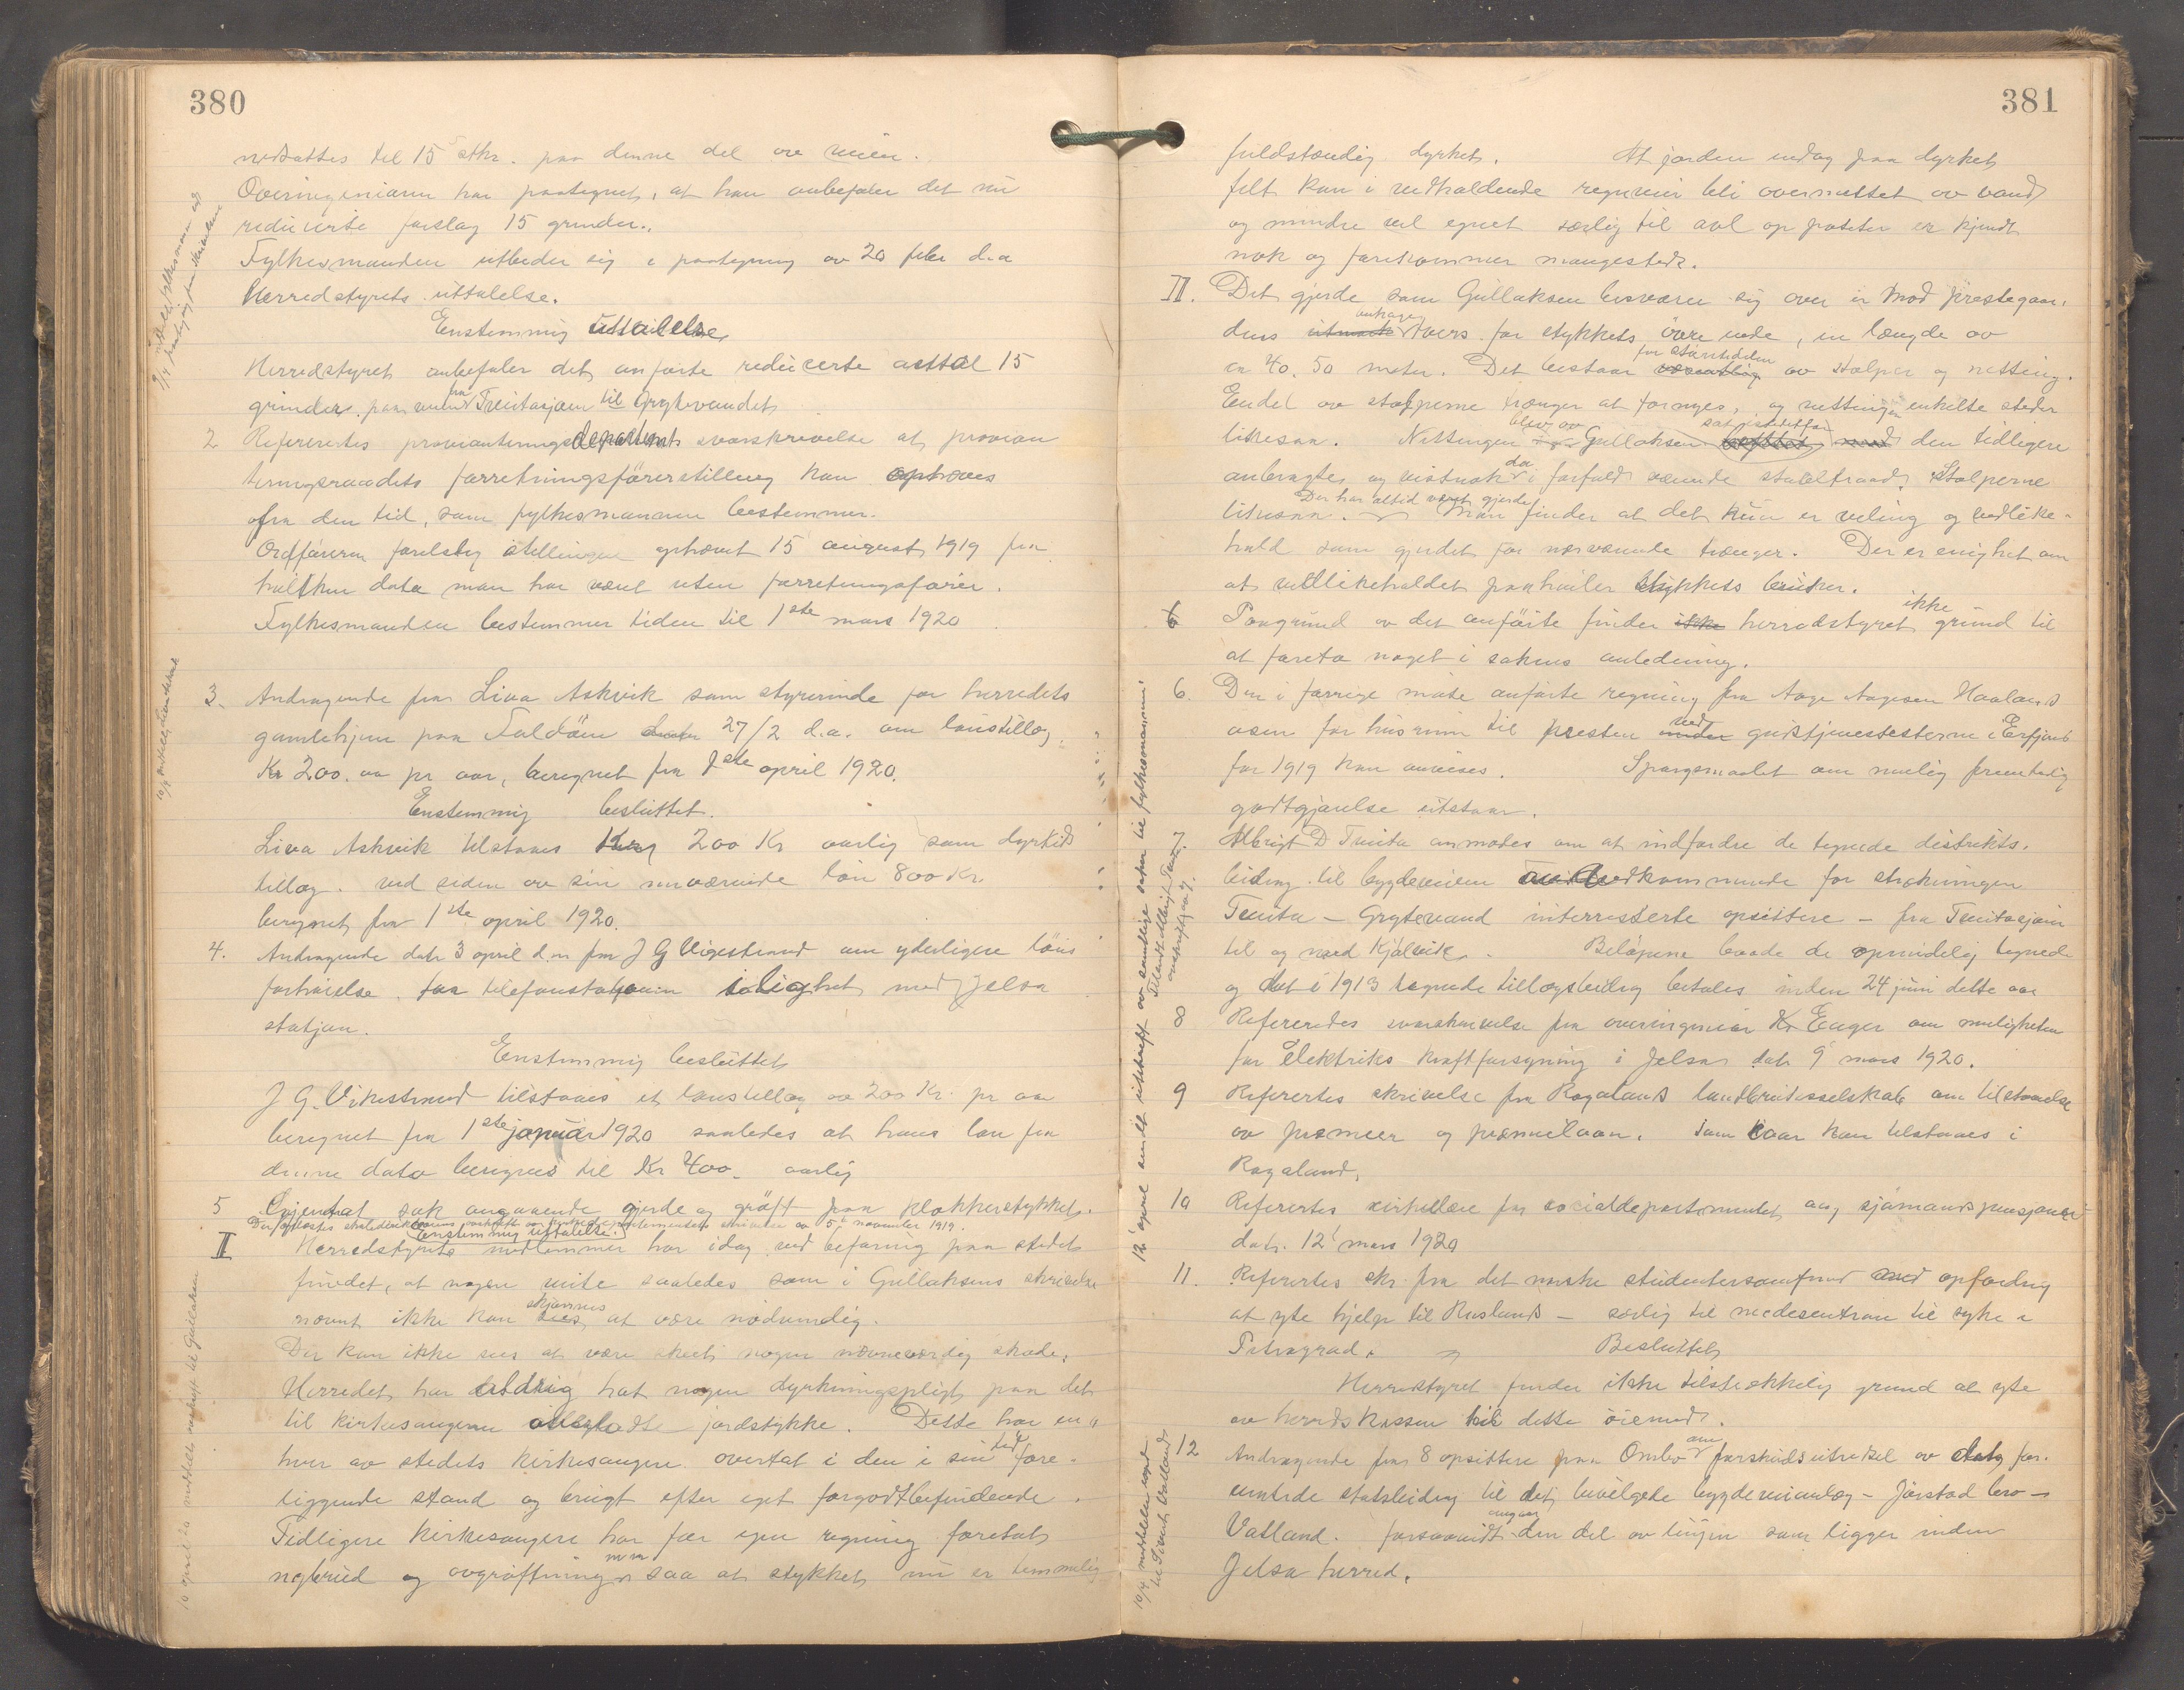 380
nedsattes til 15 stkr. paa denne del av veien.
Overingeniøren har paategnet, at han anbefaler det nu
reducerte forslag 15 grinder.
Fylkesmanden utbeder sig i paategning av 20 febr d.a
Herredstyrets uttalelse.
Enstemmig uttalelse
Herredstyret anbefaler det anførte reducerte antal 15
grinder paa veien fra Tveitasjøen til Grytevandet
2 Refereretes provianteringsdepartements svarskrivelse at provian
teringsraadets forretningsførerstilling kan ophæves
fra den tid, som fylkesmannen bestemmer.
Ordføreren foreslog stillingen ophævet 15 august 1919 fra
hvilken dato man har været uten forretningsfører.
Fylkesmanden bestemmer tiden til 1ste mars 1920
3. Andragende fra Liva Askvik som styrerinde for herredets
gamlehjem paa Foldøen 27/2 d.a. om lønstillæg
Kr 200.00 pr aar, beregnet fra 1ste april 1920.
Enstemmig besluttet.
Liva Askvik tilstaaes 200 Kr aarlig som dyrtids
tillæg ved siden av sin nuværende løn 800 Kr.
beregnet fra 1ste april 1920.
4. Andragende dat 3 april d.a fra J G Vigestrand om yderligere løns
forhøielse for telefonstasjonen i lighet med Jelsa
stasjon.
Enstemmig besluttet
J G. Vikestrand tilstaaes et lønstillæg av 200 Kr. pr aar
beregnet fra 1ste januar 1920 saaledes at hans løn fra
denne dato beregnes til Kr 400 aarlig
5 angaaende gjerde og grøft paa klokkerstykket.
5te november 1919.
(Enstemmig uttalelse.)
II Herredstyrets medlemmer har idag ved befaring paa stedet
fundet, at nogen saaledes som i Gullaksens skrivelse
nævnt ikke kan skjønnes at være nødvendig.
Der kan ikke sees at være skeet nogen nævneværdig skade.
Herredet har aldrig hat nogen dyrkningspligt paa det
til kirkesangeren jordstykke. Dette har en-
hver av stedets kirkesangere overtat i den i sin tid fore-
liggende stand og brugt efter eget forgodtbefindende.
Tidligere kirkesangere har for egen regning foretat
nybrud og avgrøftning m m saa at stykket nu er temmelig
381
fuldstændig dyrket. At jorden endog paa dyrket
felt kan i vedholdende regnveir bli overmættet av vand
og mindre vel egnet særlig til avl av poteter er kjendt
nok og forekommer mangesteds.
II. Det gjerde som Gullaksen besværer sig over er mod prestegaar-
dens tvers for stykkets øvre ende, en længde av
ca 40. 50 meter. Det bestaar for størstedelen av stolper og netting.
Endel av stolperne trænger at fornyes, og nettingen enkelte steder
likesaa. Nettingen blev av Gullaksen sat istedetfor den tidligere
anbragte og vistnok da i forfald værende staaltraad. Stolperne
likesaa. Der har altid været gjerde Man finder at det kun er veling og vedlike-
hold som gjerdet for nærværende trænger. Der er enighet om
at vedlikeholdet paahviler stykkets bruker.
Paagrund av det anførte finder herredstyret ikke grund til
at foreta noget i sakens anledning.
6. Den i forrige møte anførte regning fra Aage Aagesen Haaland
aasen for husrum til presten ved gudstjenesterne i Erfjord
for 1919 kan anvises. Spørgsmaalet om mulig fremtidig
godtgjørelse utstaar.
7. Albrigt D Tveita anmodes om at indfordre de tegnede distrikts-
bidrag til bygdeveien vedkommende for strækningen
Tveita - Grytevand interresserte opsittere - fra Tveitasjøen
til og med Kjølvik. Beløpene baade de oprindelig tegnede
og det i 1913 tegnede tillægsbidrag betales inden 24 juni dette aar
8 Refereredes svarskrivelse fra overingeniør Kr Enger om muligheten
for elektrisk kraftforsyning i Jelsa dat 9 mars 1920.
9 Refereretes skrivelse fra Rogalands landbruksselskab om tilstaaelse
av præmier og præmielaan. Som laan kan tilstaaes i
Rogaland.
10 Refereretes cirkulære fra socialdepartementet ang sjømandspensjoner
dat. 12 mars 1920
11. Refereretes skr. fra det norske studentersamfund med opfordring
at yte hjelp til Rusland - særlig til til syke i
Petrograd. Besluttet
Herredstyret finder ikke tilstrækkelig grund at yte
av herredskassen til dette øiemed.
12 Andragende fra 8 opsittere paa Ombo om forskudsutredsel av statg for-
ventede statsbidrag til det bevilgede bygdeveianlæg - Jørstad bro -
Vatland. forsaavidt angaar den del av linjen som ligger inden
Jelsa herred.